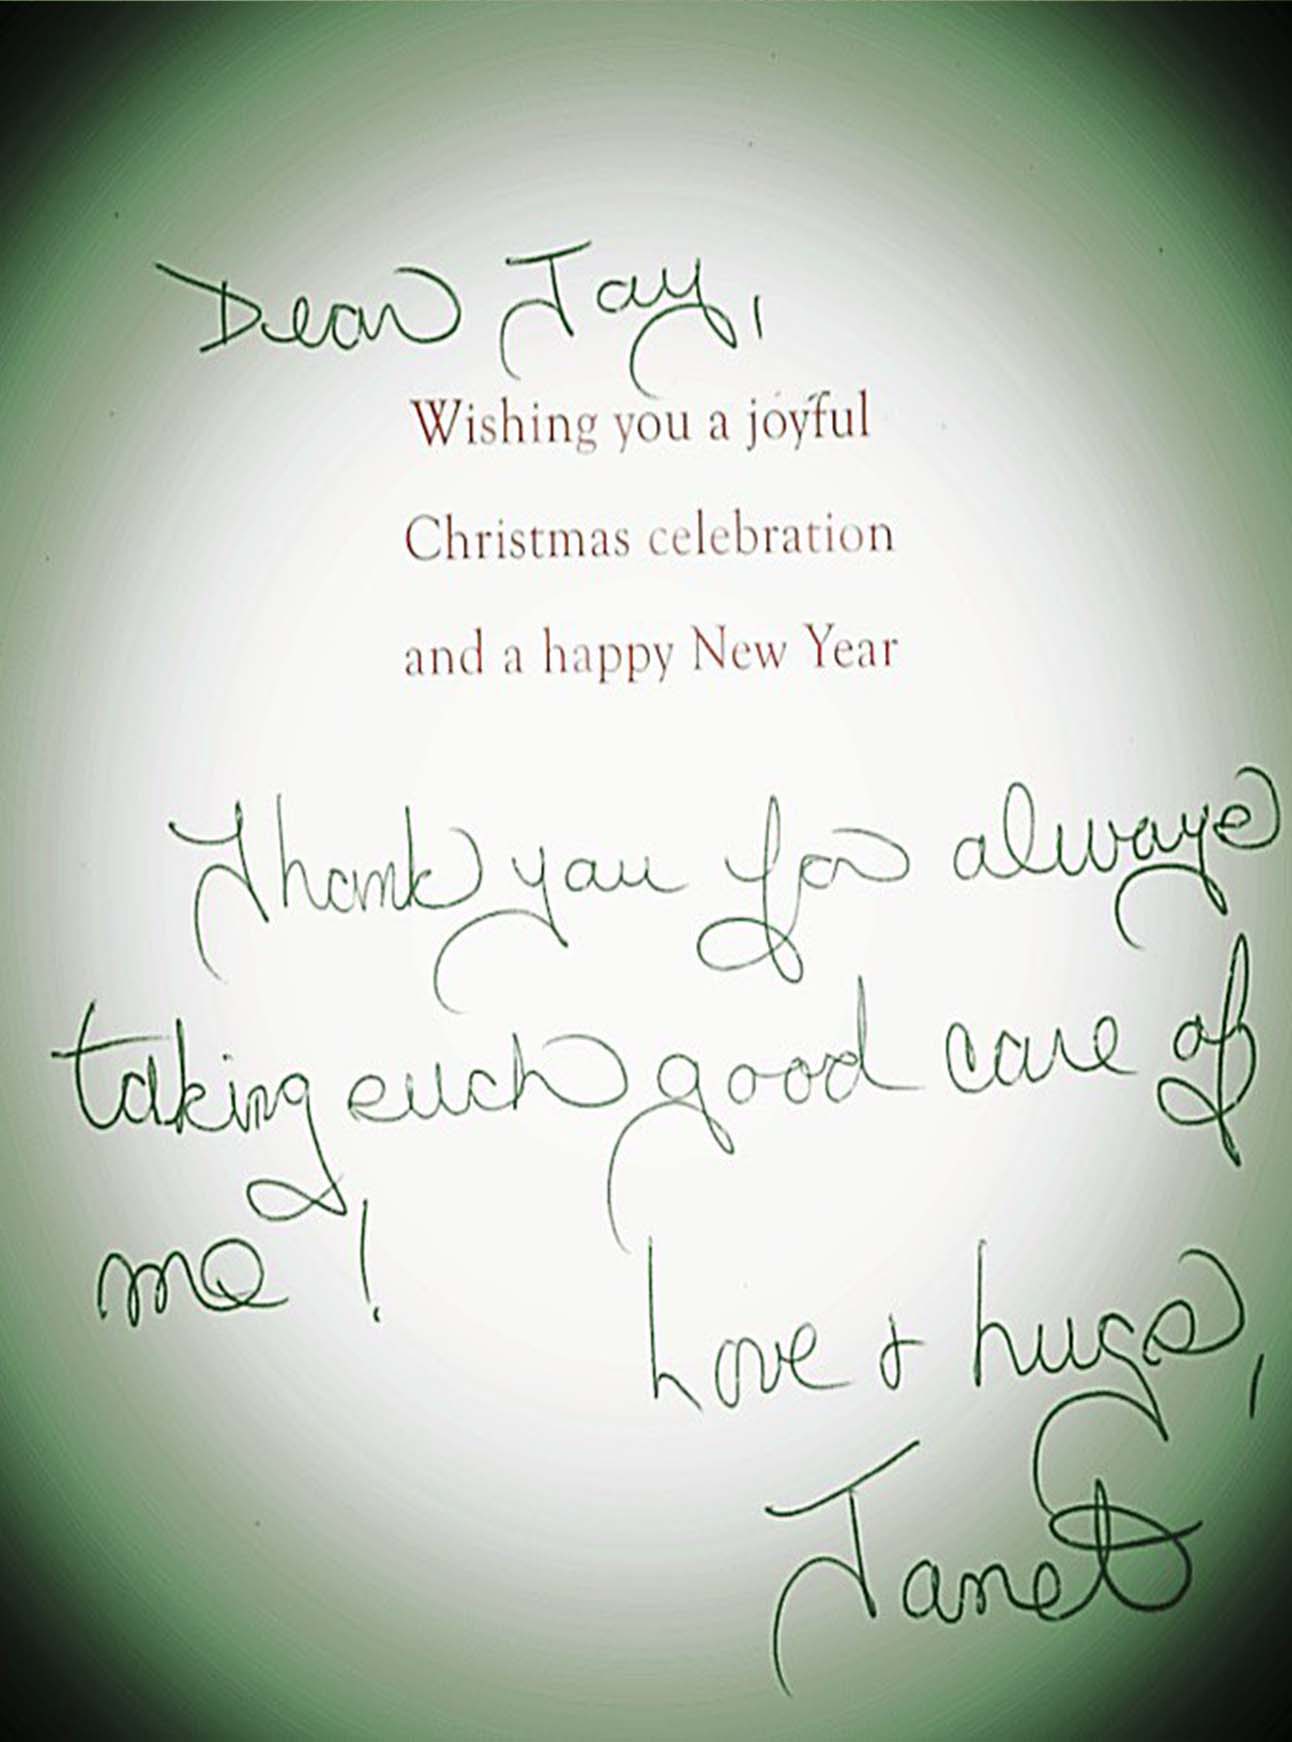 Dear Jay,
Wishing you a joyful
Christmas celebration
and a happy New Year
Thank you for always
taking such good care of
me!
Love + hugs,
Janet